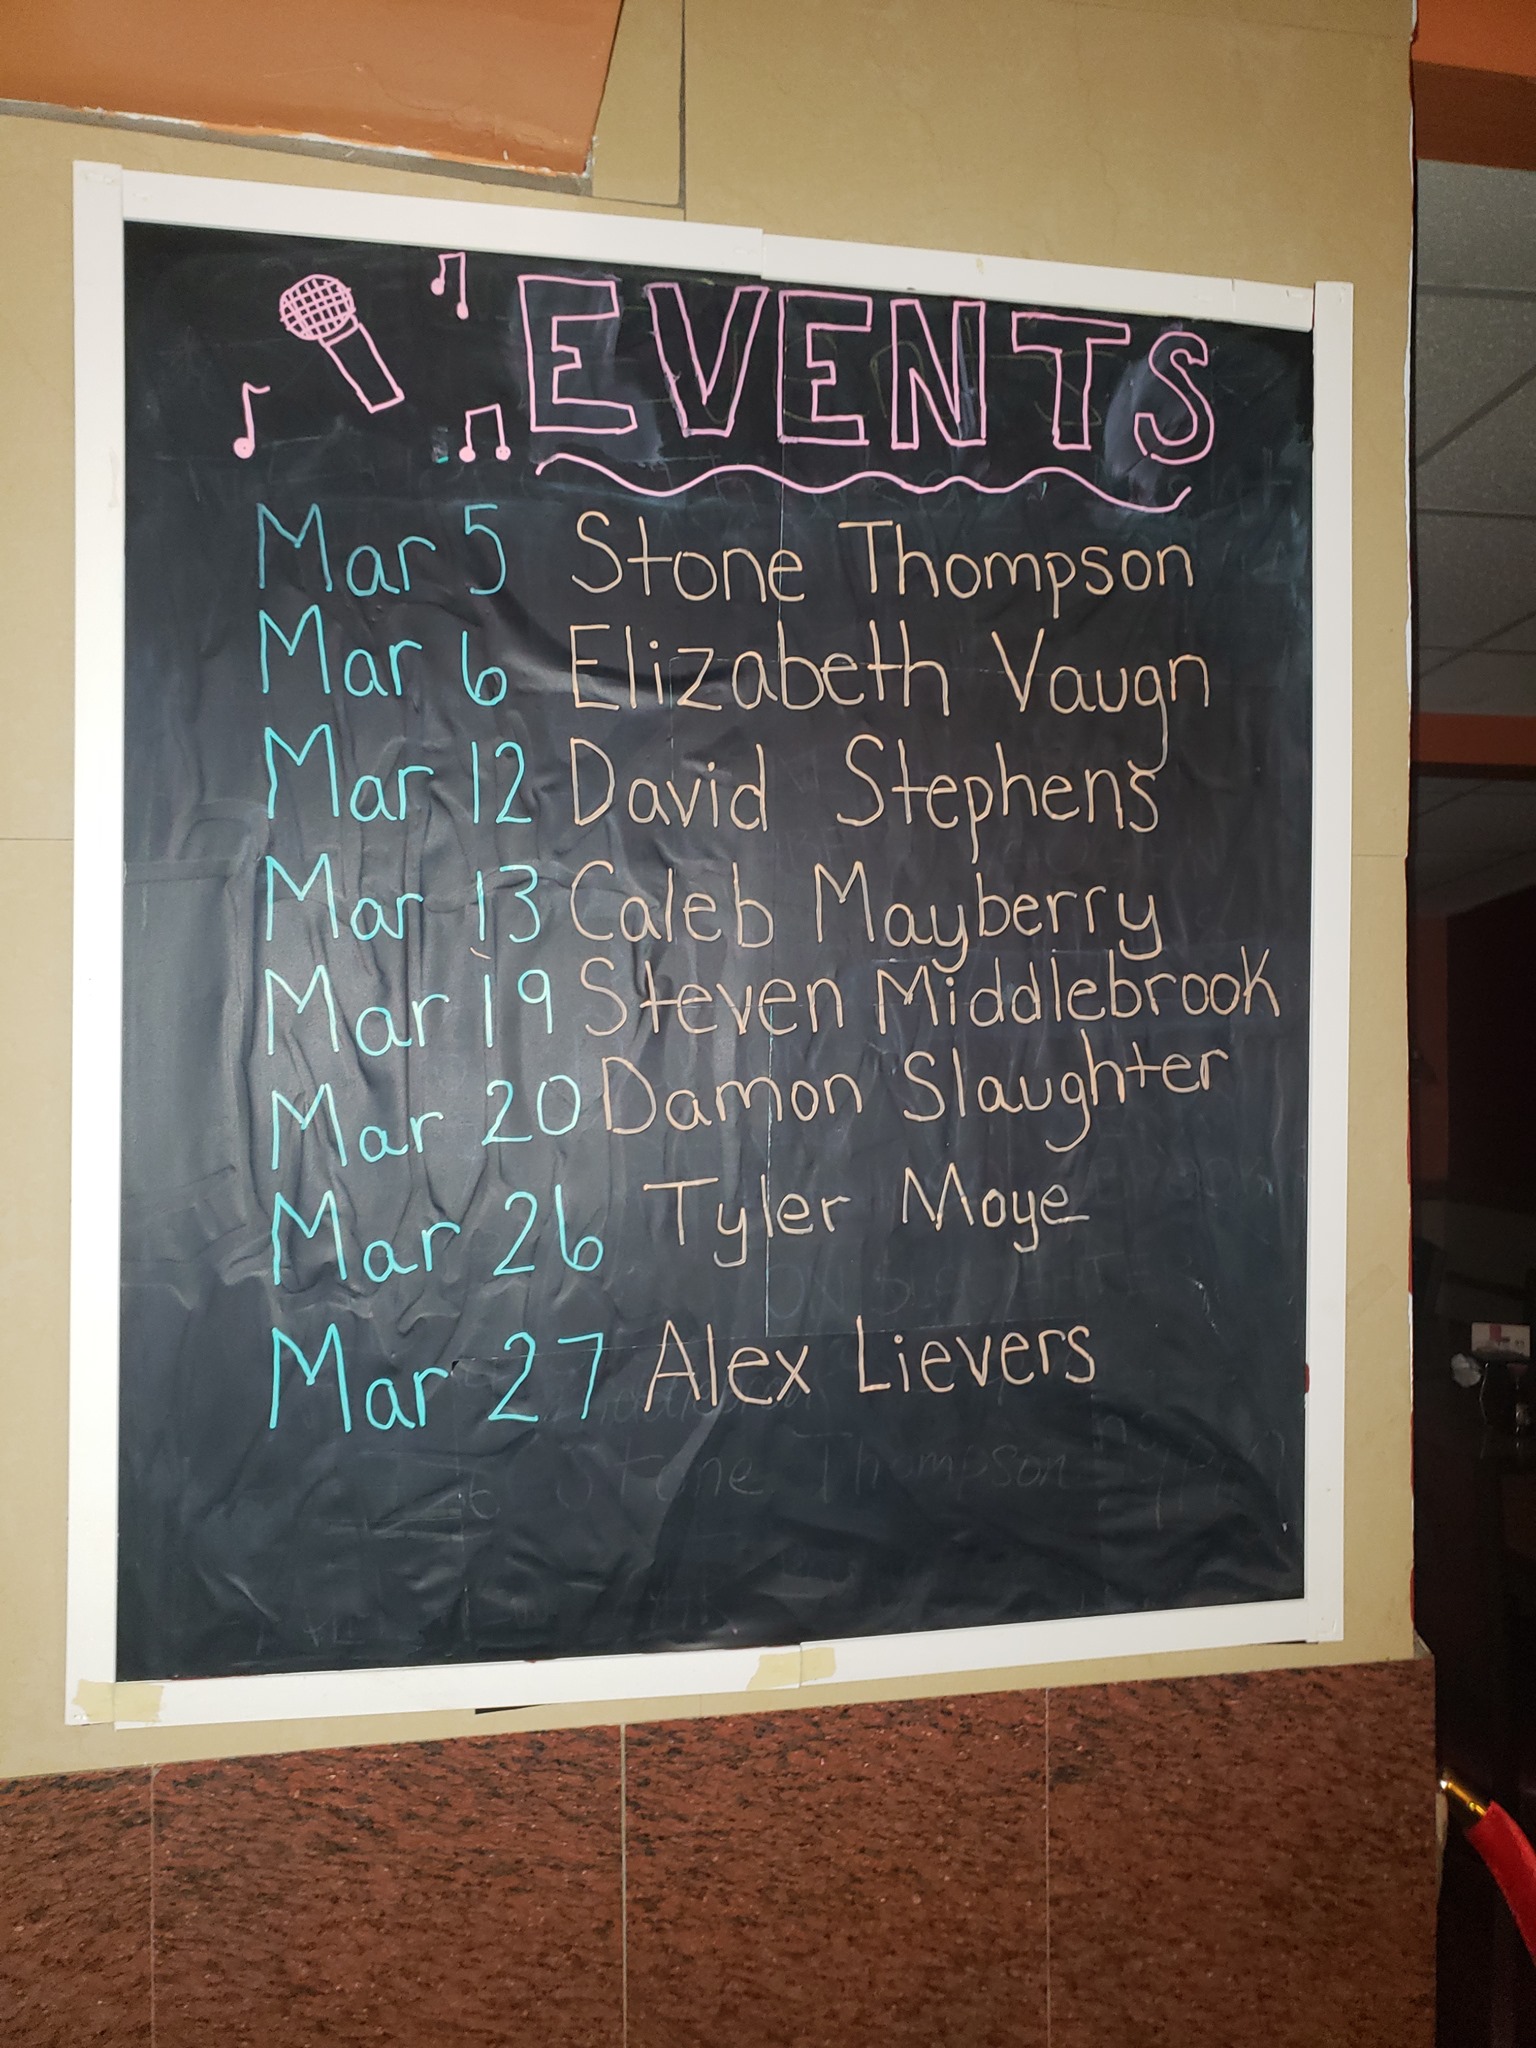 EVENTS
Mar 5 Stone Thompson
Mar 6 Elizabeth Vaugn
Mar 12 David Stephens
Mar 13 Caleb Mayberry
Mar 19 Steven Middlebrook
Mar 20 Damon Slaughter
Mar 26 Tyler Moye
Mar 27 Alex Lievers
Stone Thompson